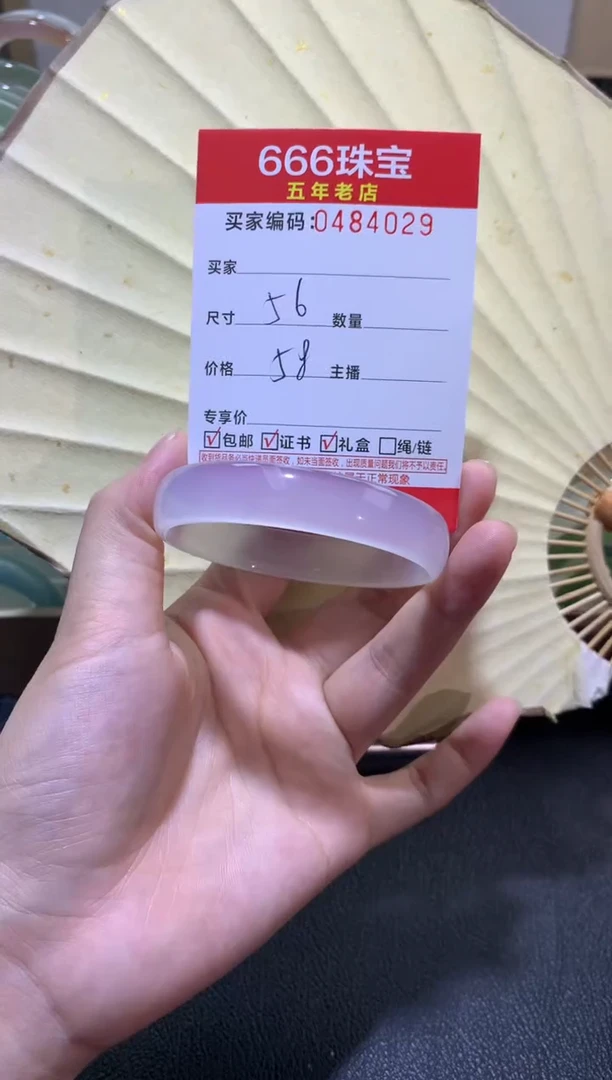 666珠宝
五年老店
买家编码:0484029
买家
尺寸 56 数量
价格 58 主播
专享价
包邮 证书 礼盒 绳/链
收到货品务必当快递员面签收，如未当面签收，出现质量问题我们将不予以责任
属于正常现象